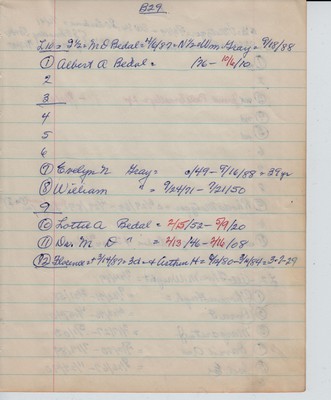 B29
Lw = S½ = M D Bedal = 4/6/87 = N½ = Wm. Gray = 9/18/88
① Albert A Bedal = /86 - 10/6/10
2
3
4
5
6
⑦ Evelyn N Gray = 0/49 - 9/16/88 = 39 yr
⑧ William " = 9/24/91 - 7/21/50
9
⑩ Lottie A Bedal = 2/5/52 - 5/9/20
⑪ Des. M D " = 2/13/46 - 2/16/08
⑫ Florence = + 3/14/87 = 3d + Arthur H = 8/6/80 - 3/4/84 = 3-7-29